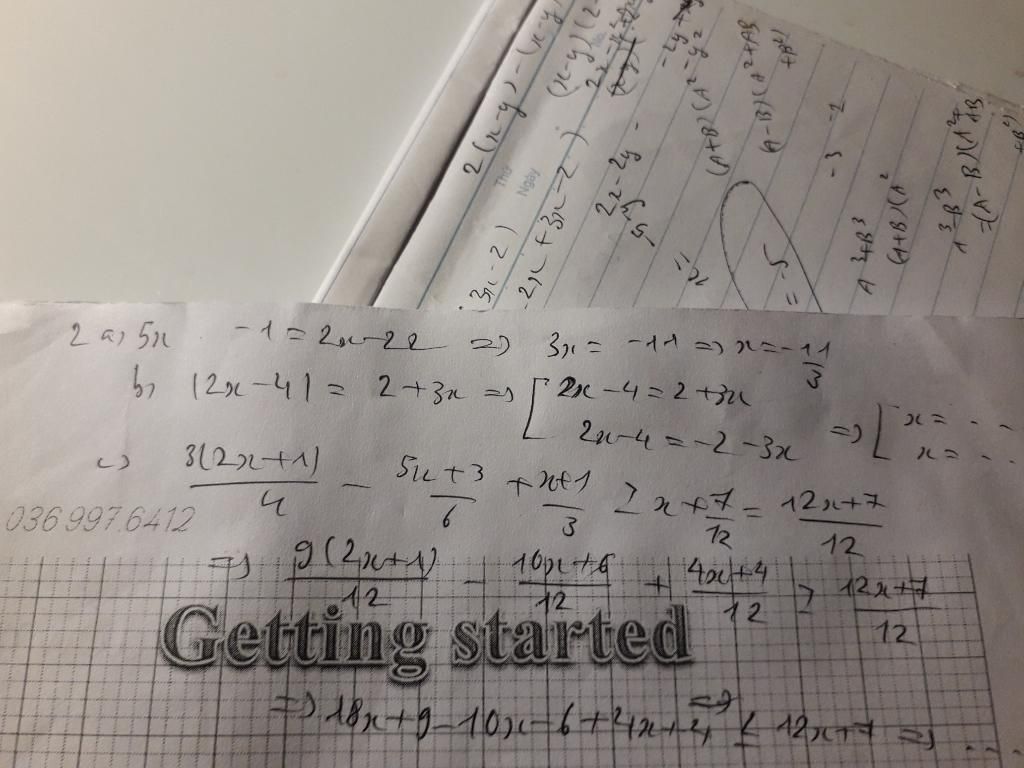 2(x-y)-(x-y)
(x-y)(2-
3x-2)
2x+3x-2)
2x-2y-
Thứ
Ngày
(A+B)(A²-y²
(A-B)(A²+AB
+B²)
-3 -2
A³+B³
(A+B)(A²
A³-B³
=(A-B)(A²+
AB
+B²)
2 a, 5x -1 = 2x-22 => 3x = -11 => x = -11/3
b, |2x-4| = 2+3x => [ 2x-4 = 2+3x
2x-4 = -2-3x => [ x = . . .
x = . . .
c, 3(2x+1)/4 - 5x+3/6 + x+1/3 ≥ x+7/12 = 12x+7/12
036 997.6412
=> 9(2x+1)/12 - 10x+6/12 + 4x+4/12 > 12x+7/12
Getting started
=> 18x+9-10x-6+4x+4 ≤ 12x+7 => . . .